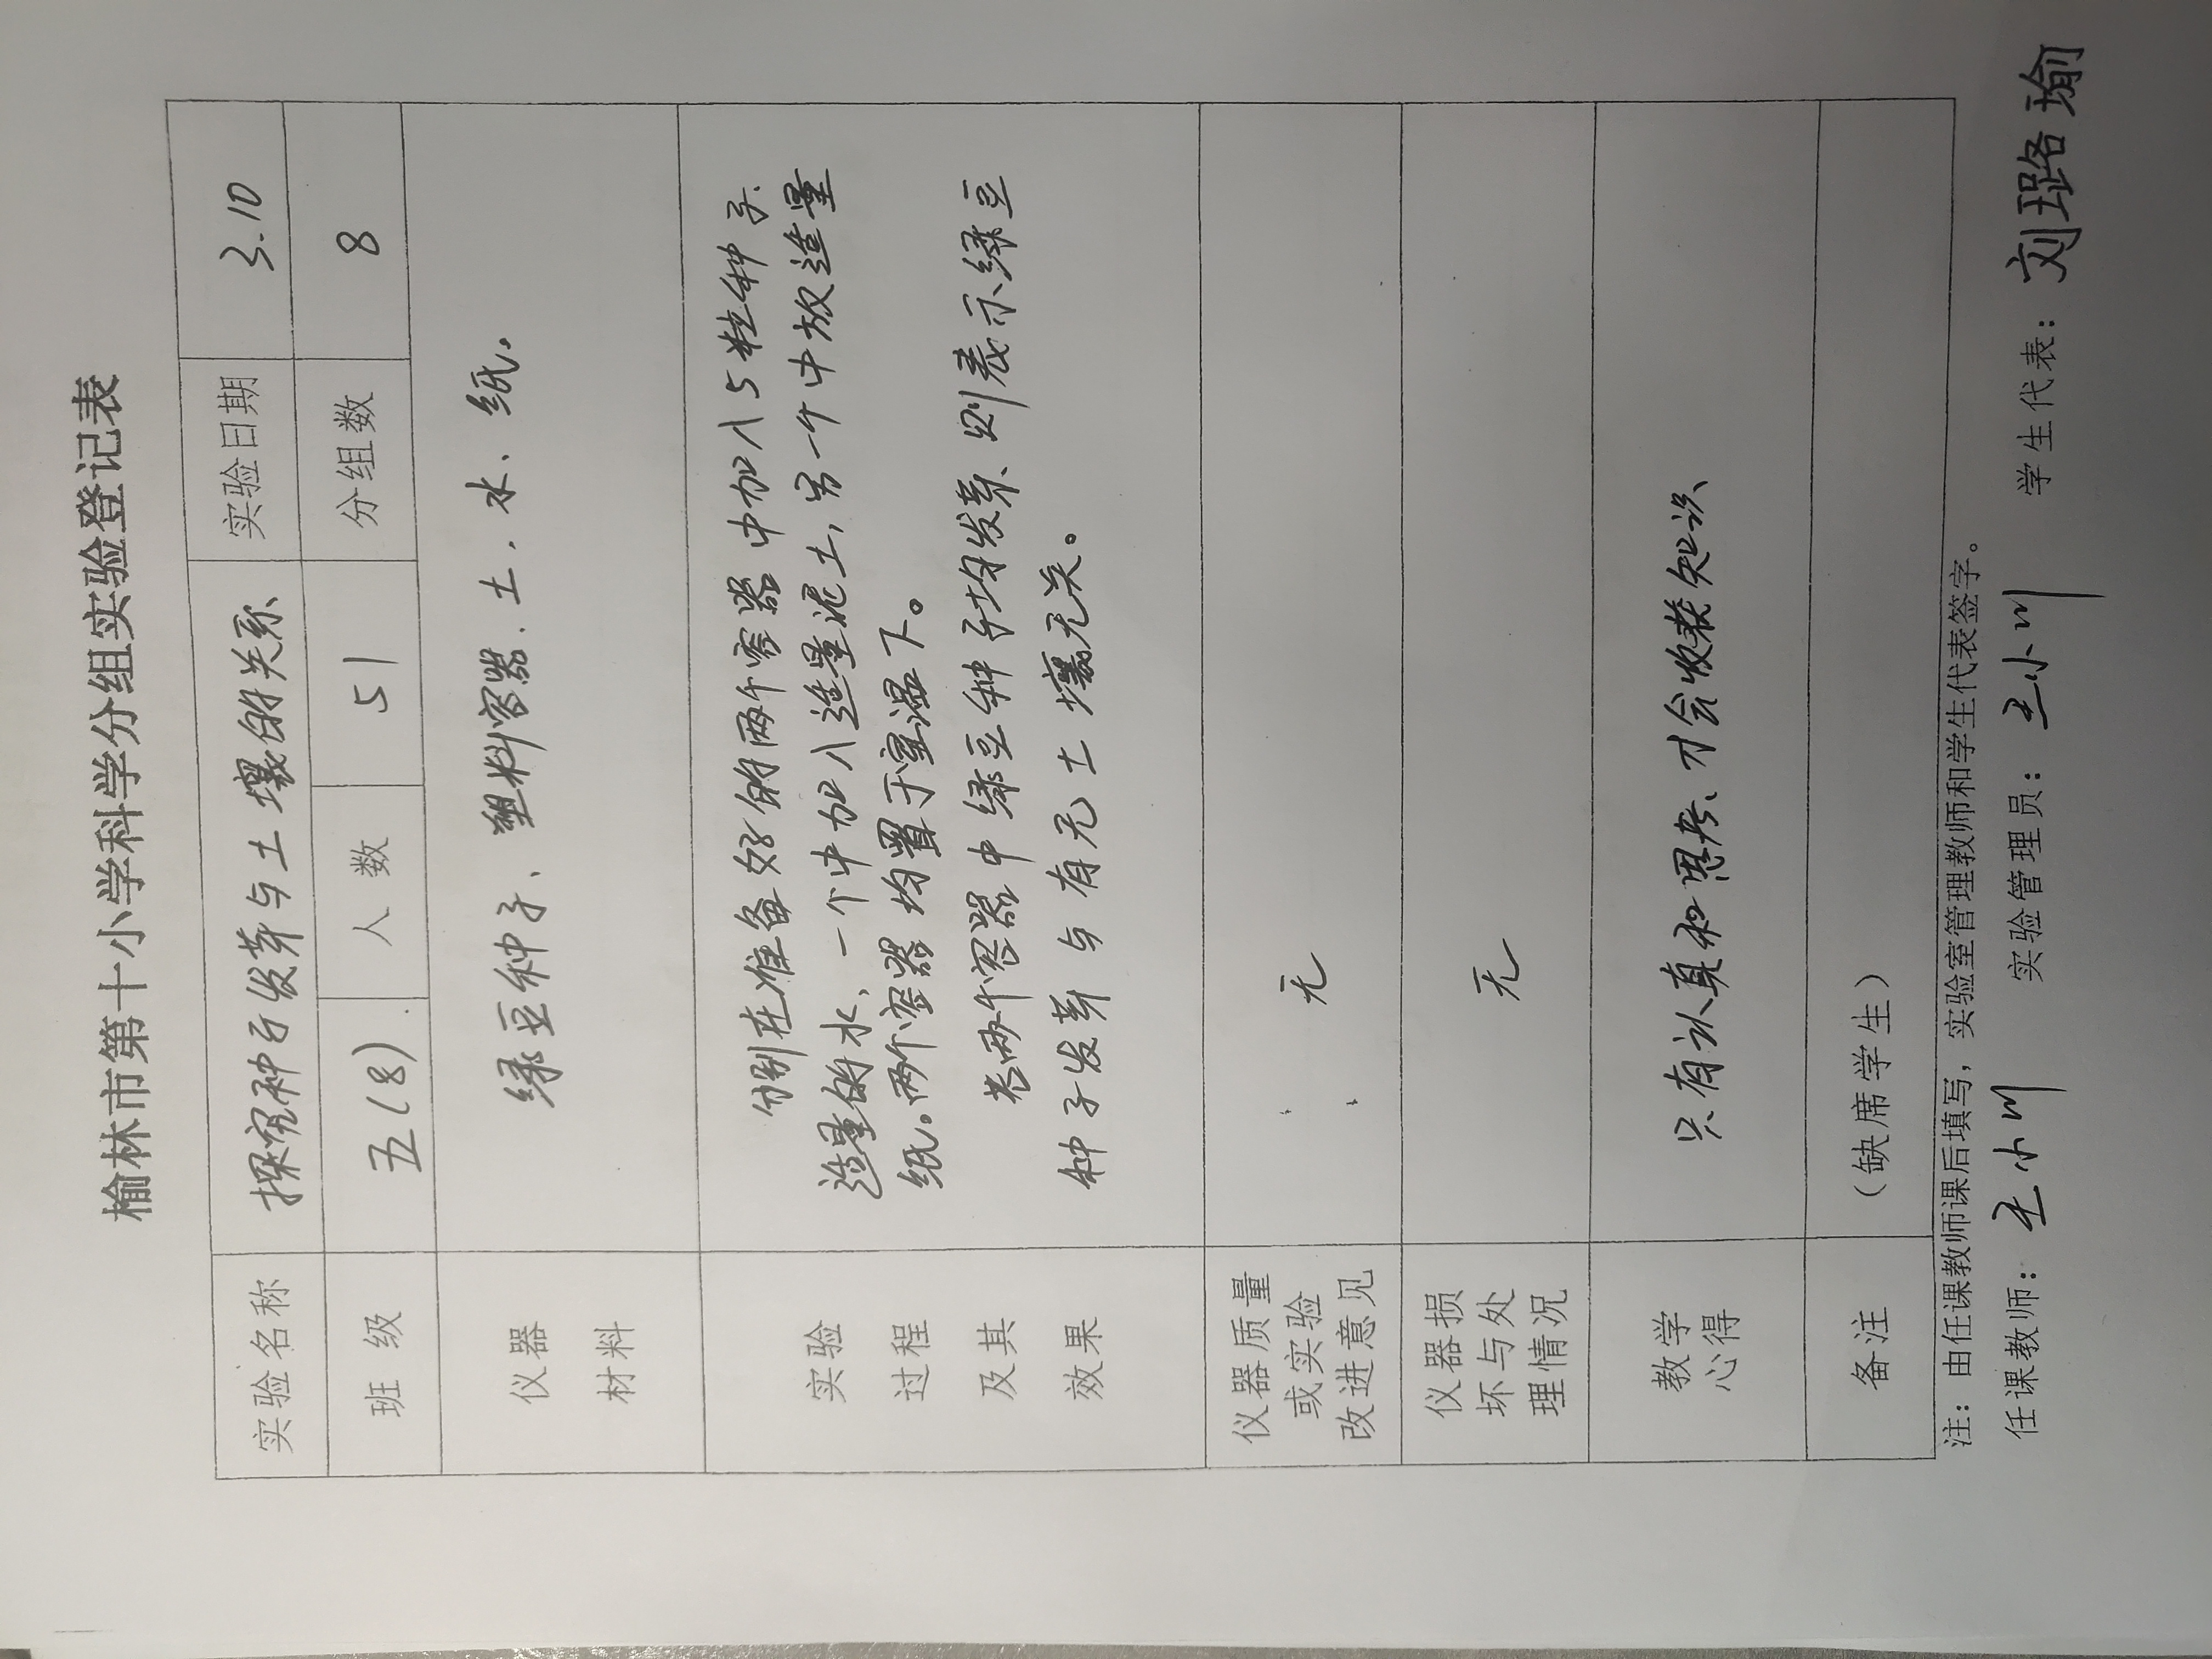 榆林市第十小学科学分组实验登记表
实验名称 探究种子发芽与土壤的关系 实验日期 3.10
班级 五(8) 人数 51 分组数 8
仪器
材料
绿豆种子、塑料容器、土、水、纸。
实验
过程
及其
效果
分别在准备好的两个容器中加入5粒种子、
适量的水,一个中加入适量泥土,另一个中放适量
纸。两个容器均置于室温下。
若两个容器中绿豆种子均发芽、则表示绿豆
种子发芽与有无土壤无关。
仪器质量
或实验
改进意见
无
仪器损
坏与处
理情况
无
教学
心得
只有认真和思考、才会收获知识
备注 (缺席学生)
注:由任课教师课后填写,实验室管理教师和学生代表签字。
任课教师: 王小川 实验管理员: 王小川 学生代表: 刘璐瑜